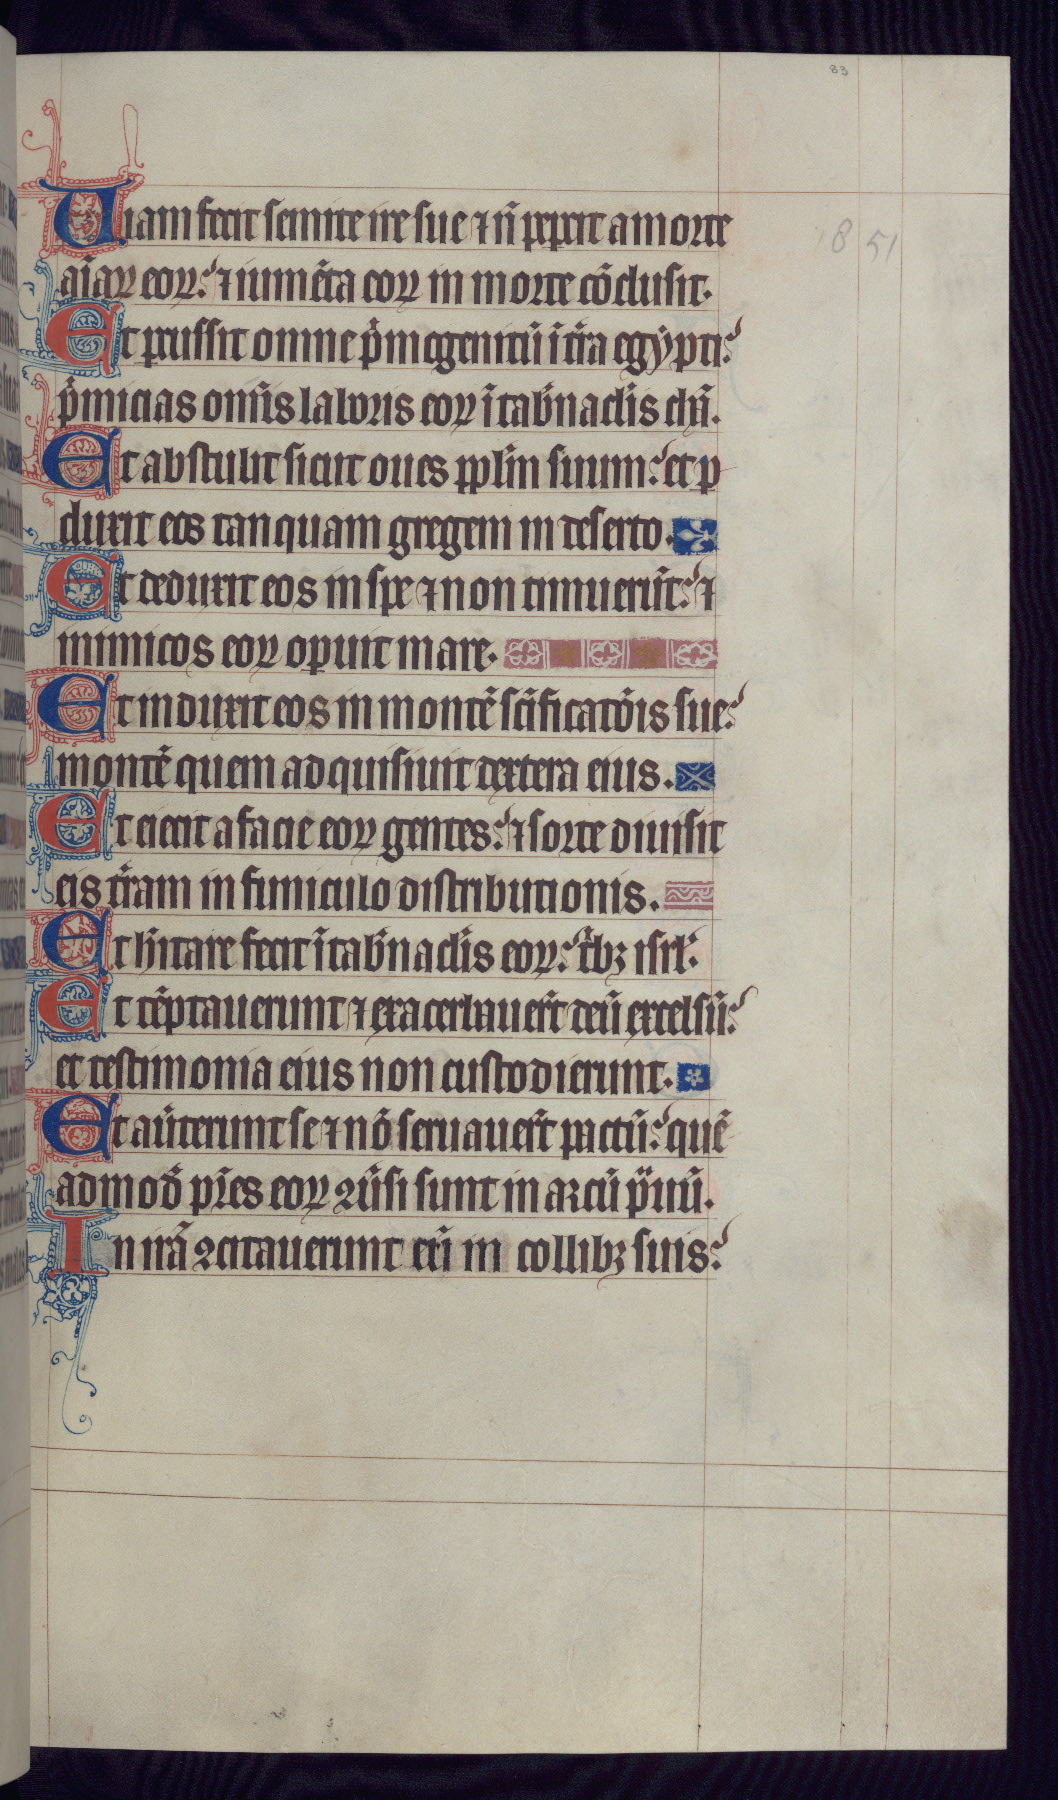 83
18 51
Uiam fecit semite ire sue ⁊ nͦ peꝑcit a morte
aīaꝝ eoꝝ: ⁊ iumēta eoꝝ in morte cōclusit.
Et ꝑcussit omne pͥmogenitū ī tͤra egypti:
pͥmicias omīs laboris eoꝝ ī tab̄naclīs chā.
Et abstulit sicut oues pplm̄ suum: et ꝑ
duxit eos tanquam gregem in deserto.
Et deduxit eos in spe ⁊ non timuerūt: ⁊
inimicos eoꝝ oꝑuit mare.
Et induxit eos in montē sc̄ificatōis sue:
montē quem adquisiuit dextera eius.
Et eiecit a facie eoꝝ gentes: ⁊ sorte diuisit
eis tͤram in funiculo distributionis.
Et hītare fecit ī tab̄naclīs eoꝝ: tͥbꝫ isrl̄.
Et tēptauerunt ⁊ exacerbauert̄ deū excelsū:
et testimonia eius non custodierunt.
Et aūterunt se ⁊ nō seruauert̄ pactū: quē
admodū pr̄es eoꝝ ꝯūsi sunt in arcū pͣuū.
In irā ꝯcitauerunt eū in collibꝫ suis: